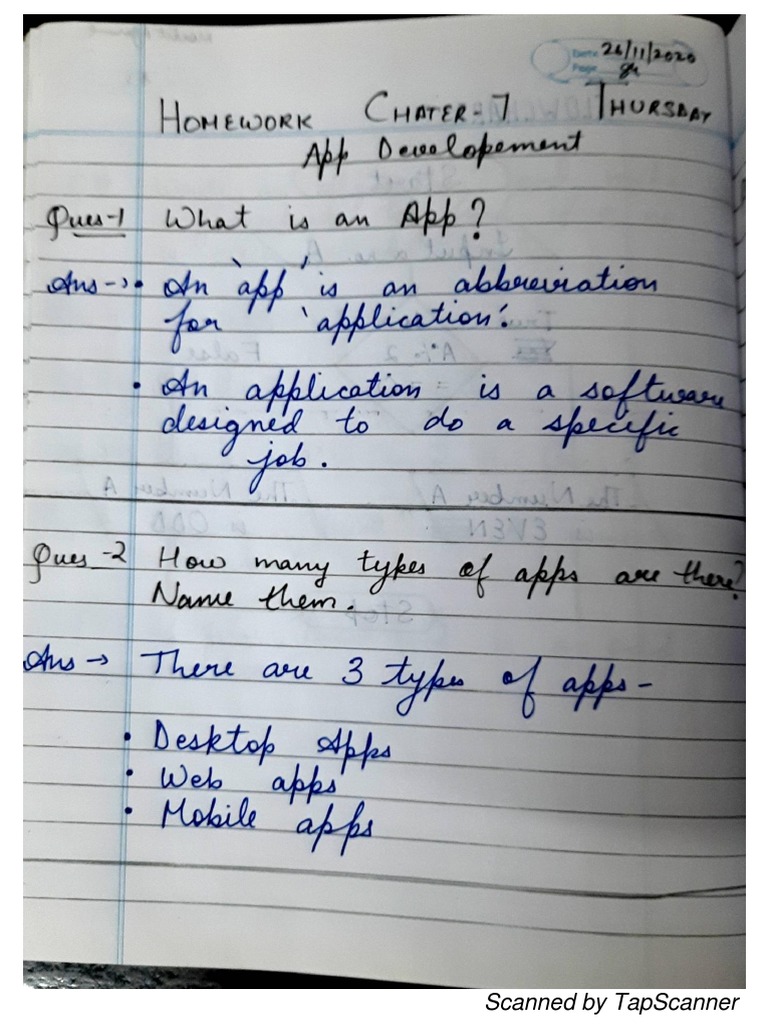 Date 26/11/2020
Page
HOMEWORK CHATER-7 THURSDAY
App Developement
Ques-1 What is an App?
Ans → • An 'app' is an abbreviation
for 'application'.
• An application is a software
designed to do a specific
job.
Ques-2 How many types of apps are there?
Name them.
Ans → There are 3 types of apps-
• Desktop Apps
• Web apps
• Mobile apps
Scanned by TapScanner